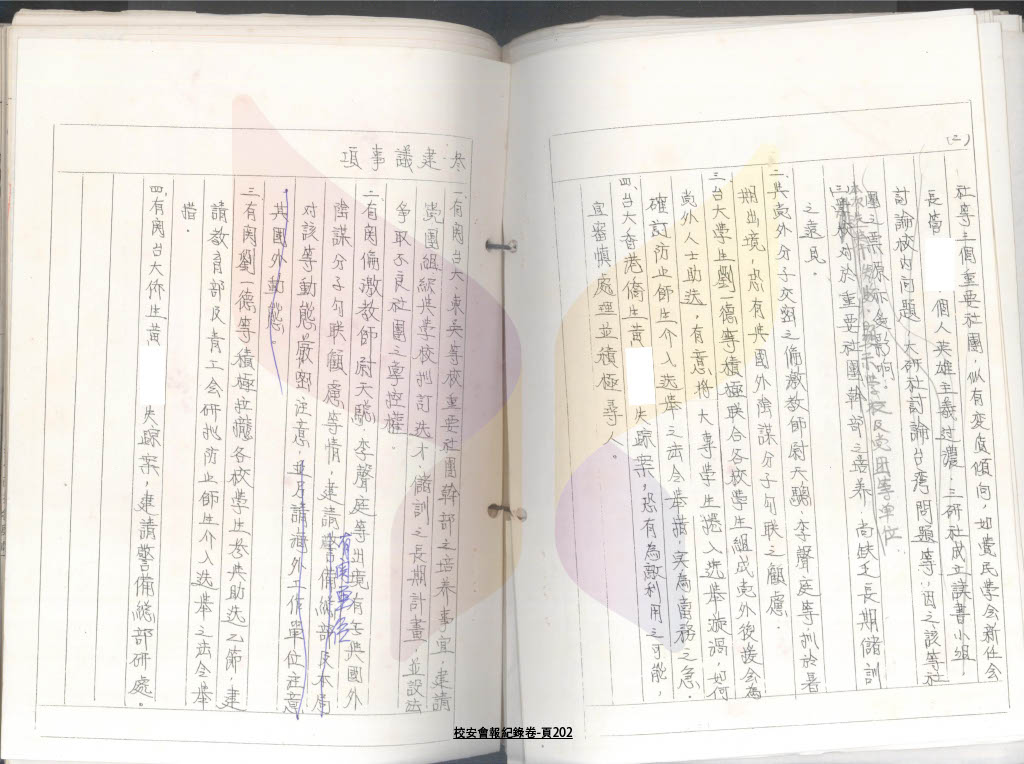 (二)
社等三個重要社團,似有變質傾向,如覺民學會新任會
長曾 ,個人英雄主義過濃,三研社成立讀書小組,
討論校內問題,大研社討論台灣問題等,因之該等社
團之
影响。
學校及党團等單位
對於重要社團幹部之培養,尚缺乏長期儲訓
之遠見。
二、與党外分子交密之偏激教師尉天驄、李聲庭等,擬於暑
期出境,恐有與國外陰謀分子勾联之顧慮。
三、台大學生劉一德等積極联合各校學生組成党外後援会為
党外人士助选,有意將大專學生捲入选舉漩渦,如何
確訂防止師生介入选舉之法令舉措,实為當務之急。
四、台大香港僑生黃 失踪案,恐有為敵利用之可能,
宜審慎處理並積極尋人。
叁、建議事項
一、有関台大、東吳等校重要社團幹部之培養事宜,建請
党團組織與學校批訂选才、儲訓之長期計畫,並設法
爭取不良社團之導控權。
二、有関偏激教師尉天驄、李聲庭等出境有無與國外
陰謀分子勾联顧慮等情,建請警備總部及本局
有関單位
對該等動態嚴密注意,並另請海外工作單位注意
其國外動態。
三、有関劉一德等積極拉龍各校學生參與助选乙節,建
請教育部及青工会研批防止師生介入选舉之法令舉
措。
四、有関台大僑生黃 失踪案,建請警備總部研處。
校安會報紀錄卷-頁202